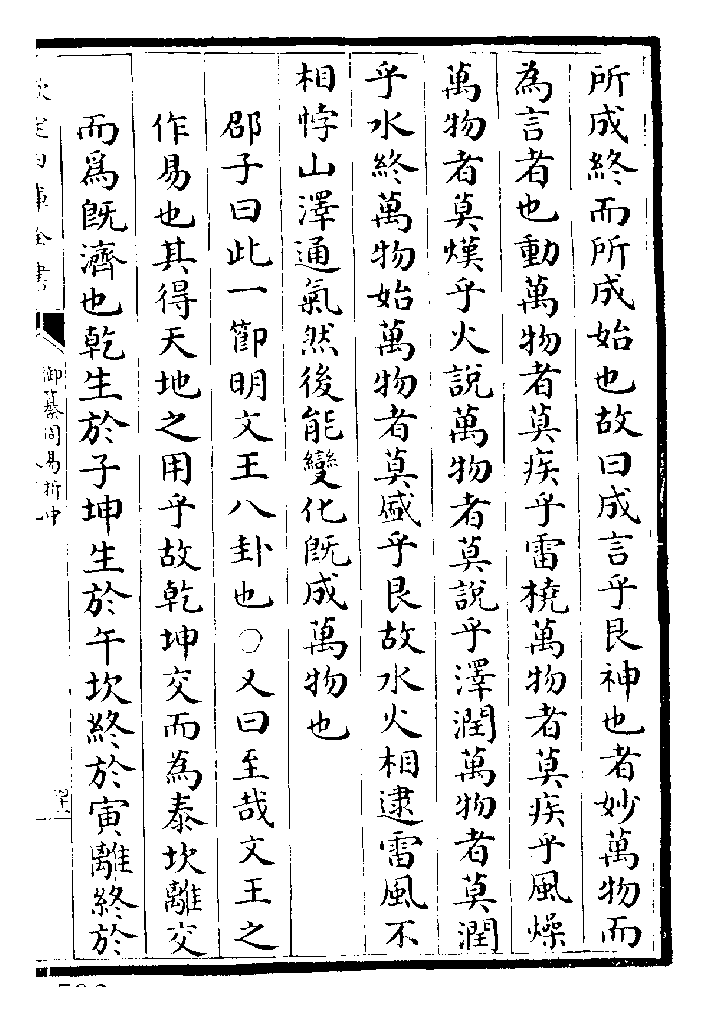 所成終而所成始也故曰成言乎艮神也者妙萬物而
為言者也動萬物者莫疾乎雷橈萬物者莫疾乎風燥
萬物者莫熯乎火說萬物者莫說乎澤潤萬物者莫潤
乎水終萬物始萬物者莫盛乎艮故水火相逮雷風不
相悖山澤通氣然後能變化既成萬物也
邵子曰此一節明文王八卦也○又曰至哉文王之
作易也其得天地之用乎故乾坤交而為泰坎離交
而爲既濟也乾生於子坤生於午坎終於寅離終於
欽定四庫全書
御纂周易折中